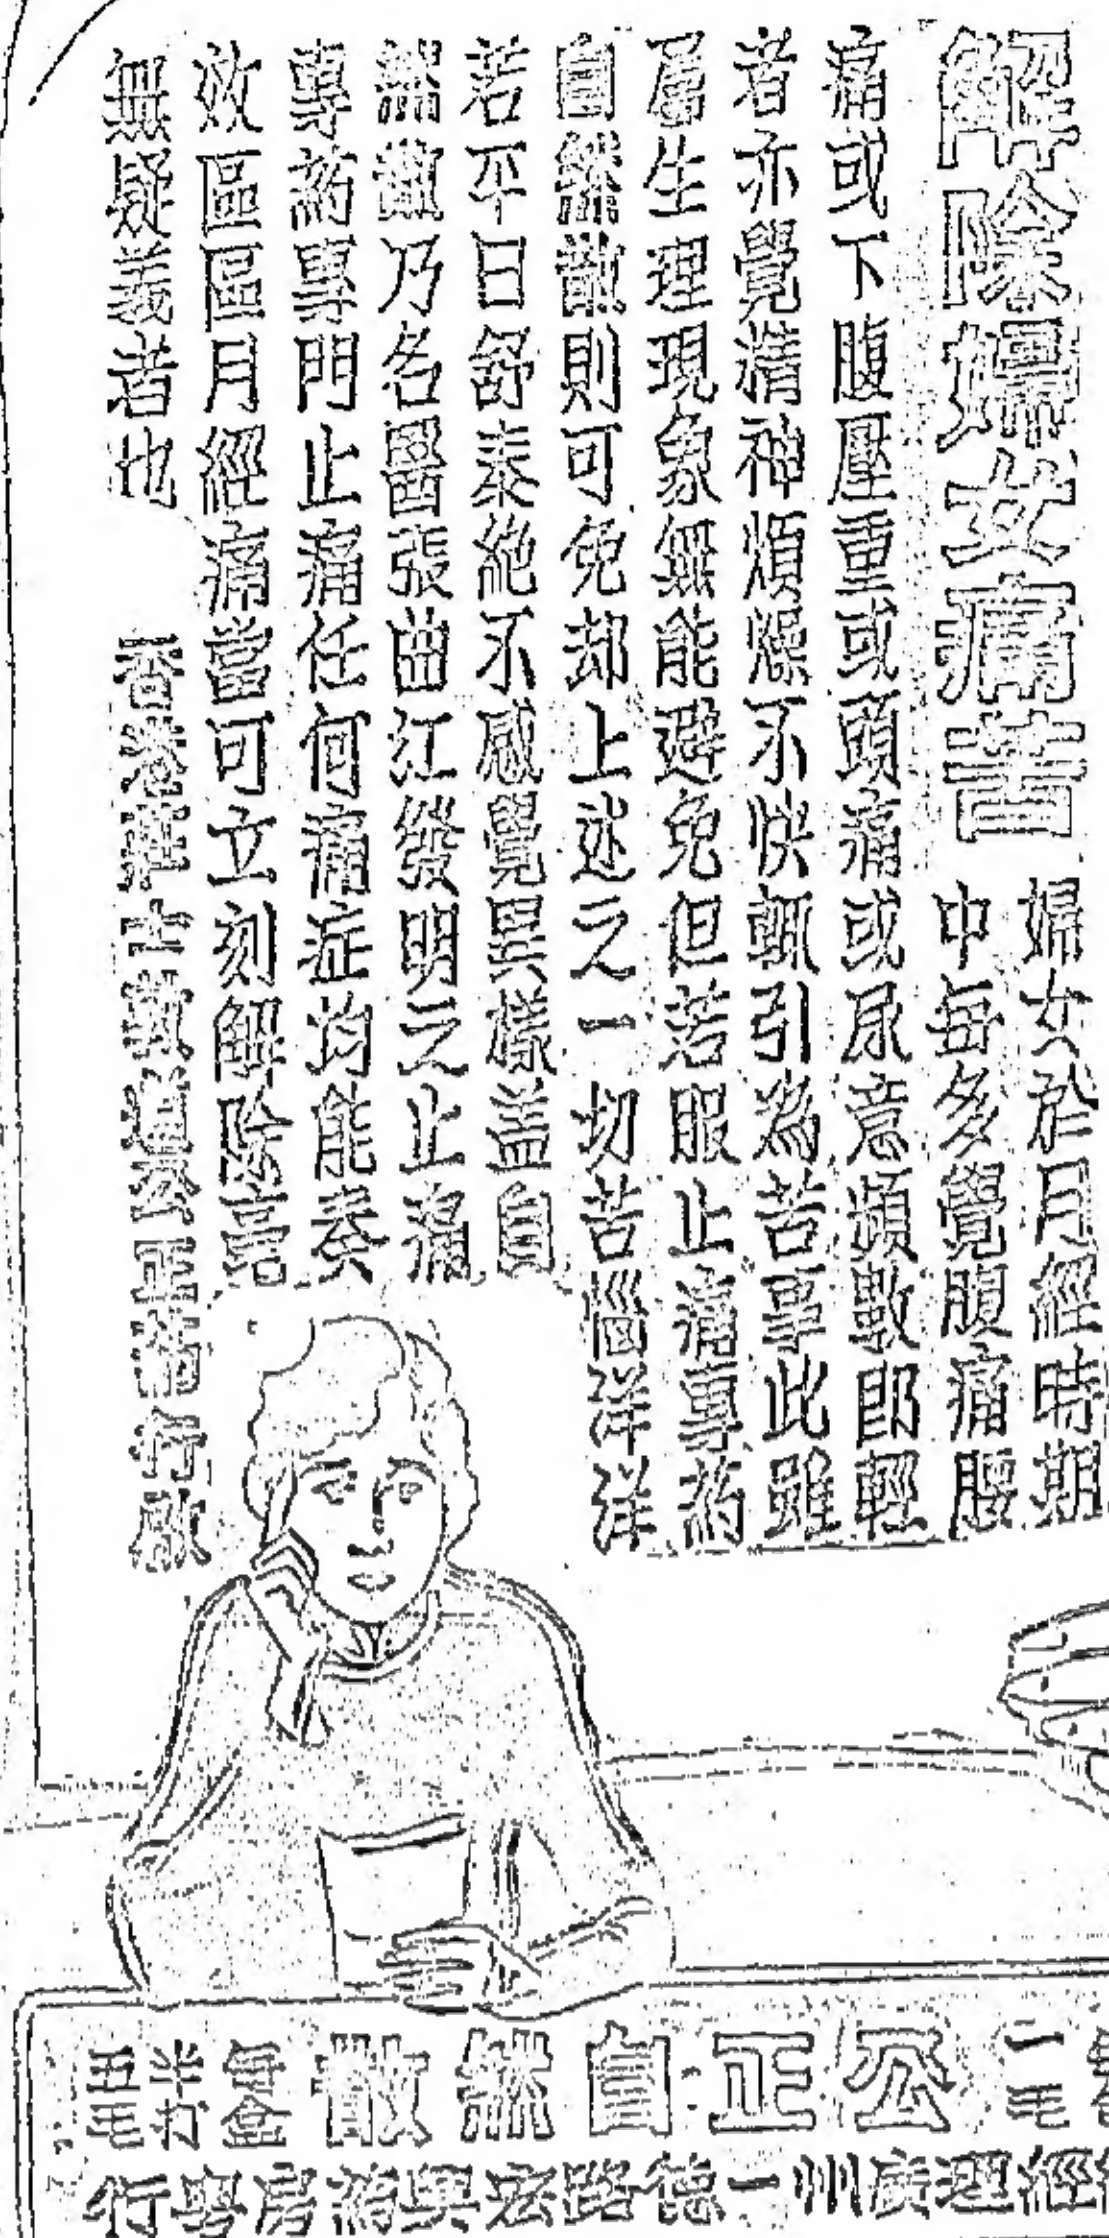 解除婦女痛苦
婦女於月經時期
中每多覺腹痛腰
痛或下腹壓重或頭痛或尿意頻數即輕
者亦覺精神煩燥不快輒引為苦事此雖
屬生理現象無能避免但若服止痛專葯
自然散則可免却上述之一切苦惱洋洋
若平日舒泰絶不感覺異樣盖自
然散乃名醫張曲江發明之止痛
專葯專門止痛任何痛症均能奏
效區區月經痛當可立刻解除毫
無疑義者也
香港華士黃道公正葯行啟
公正自然散
一毛
每盒
半打
五毛
經理廣州一德路宏興葯房粵行